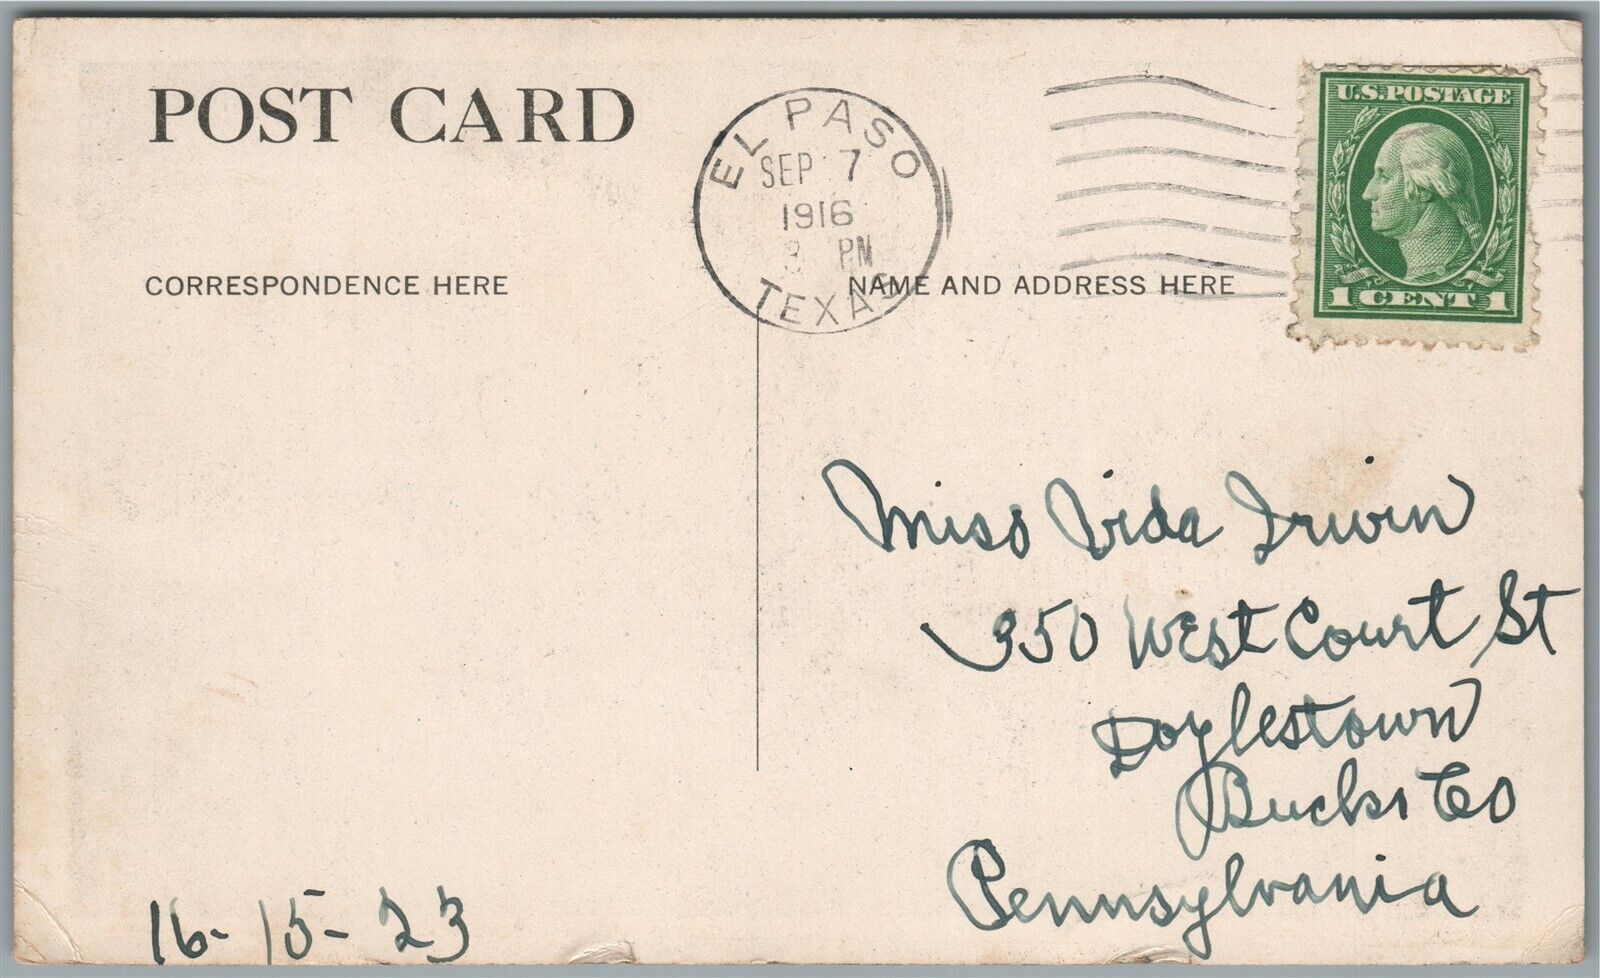 POST CARD
EL PASO
SEP 7
1916
3 PM
TEXAS
U.S. POSTAGE
1 CENT 1
CORRESPONDENCE HERE
NAME AND ADDRESS HERE
Miss Vida Irwin
350 West Court St
Doylestown
Bucks Co
Pennsylvania
16-15-23